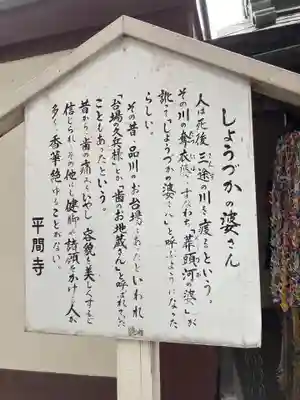 しょうづかの婆さん
人は死後三途の川を渡るという。
その川の奪衣婆、すなわち「葬頭河の婆」が
訛って「しょうづかの婆さん」と呼ぶようになった
らしい。
その昔、品川のお台場にあったといわれ
「台場の久兵様」とか「歯のお地蔵さん」と呼ばれていた
こともあったという。
昔から「歯の痛み」をいやし、容貌を美しくすると
信じられ、その他にも健脚や諸願をかけに人が
多く、香華絶ゆることがない。
平間寺